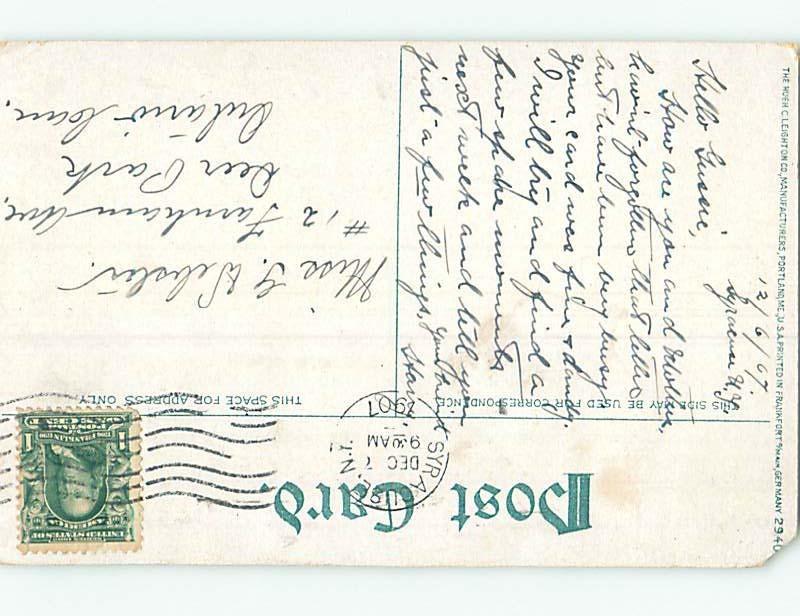 Post Card.
THIS SIDE MAY BE USED FOR CORRESPONDENCE
THIS SPACE FOR ADDRESS ONLY
SYRACUSE, N.Y.
DEC 7
9 30 AM
1907
UNITED STATES OF AMERICA
1
12/6/07
Syracuse N.Y.
Hello Gussie,
How are you and Mother.
haven't forgotten that letter
but have been busy busy
Your card was fine & dandy.
I will try and find a
few spare moments
next week and tell you
just a few things.
Miss G. Webster.
#12 Farnham Ave,
Deer Park
Ontario Can.
THE HUGH C. LEIGHTON CO., MANUFACTURERS, PORTLAND, ME., U.S.A. PRINTED IN FRANKFORT o/MAIN, GERMANY 2940